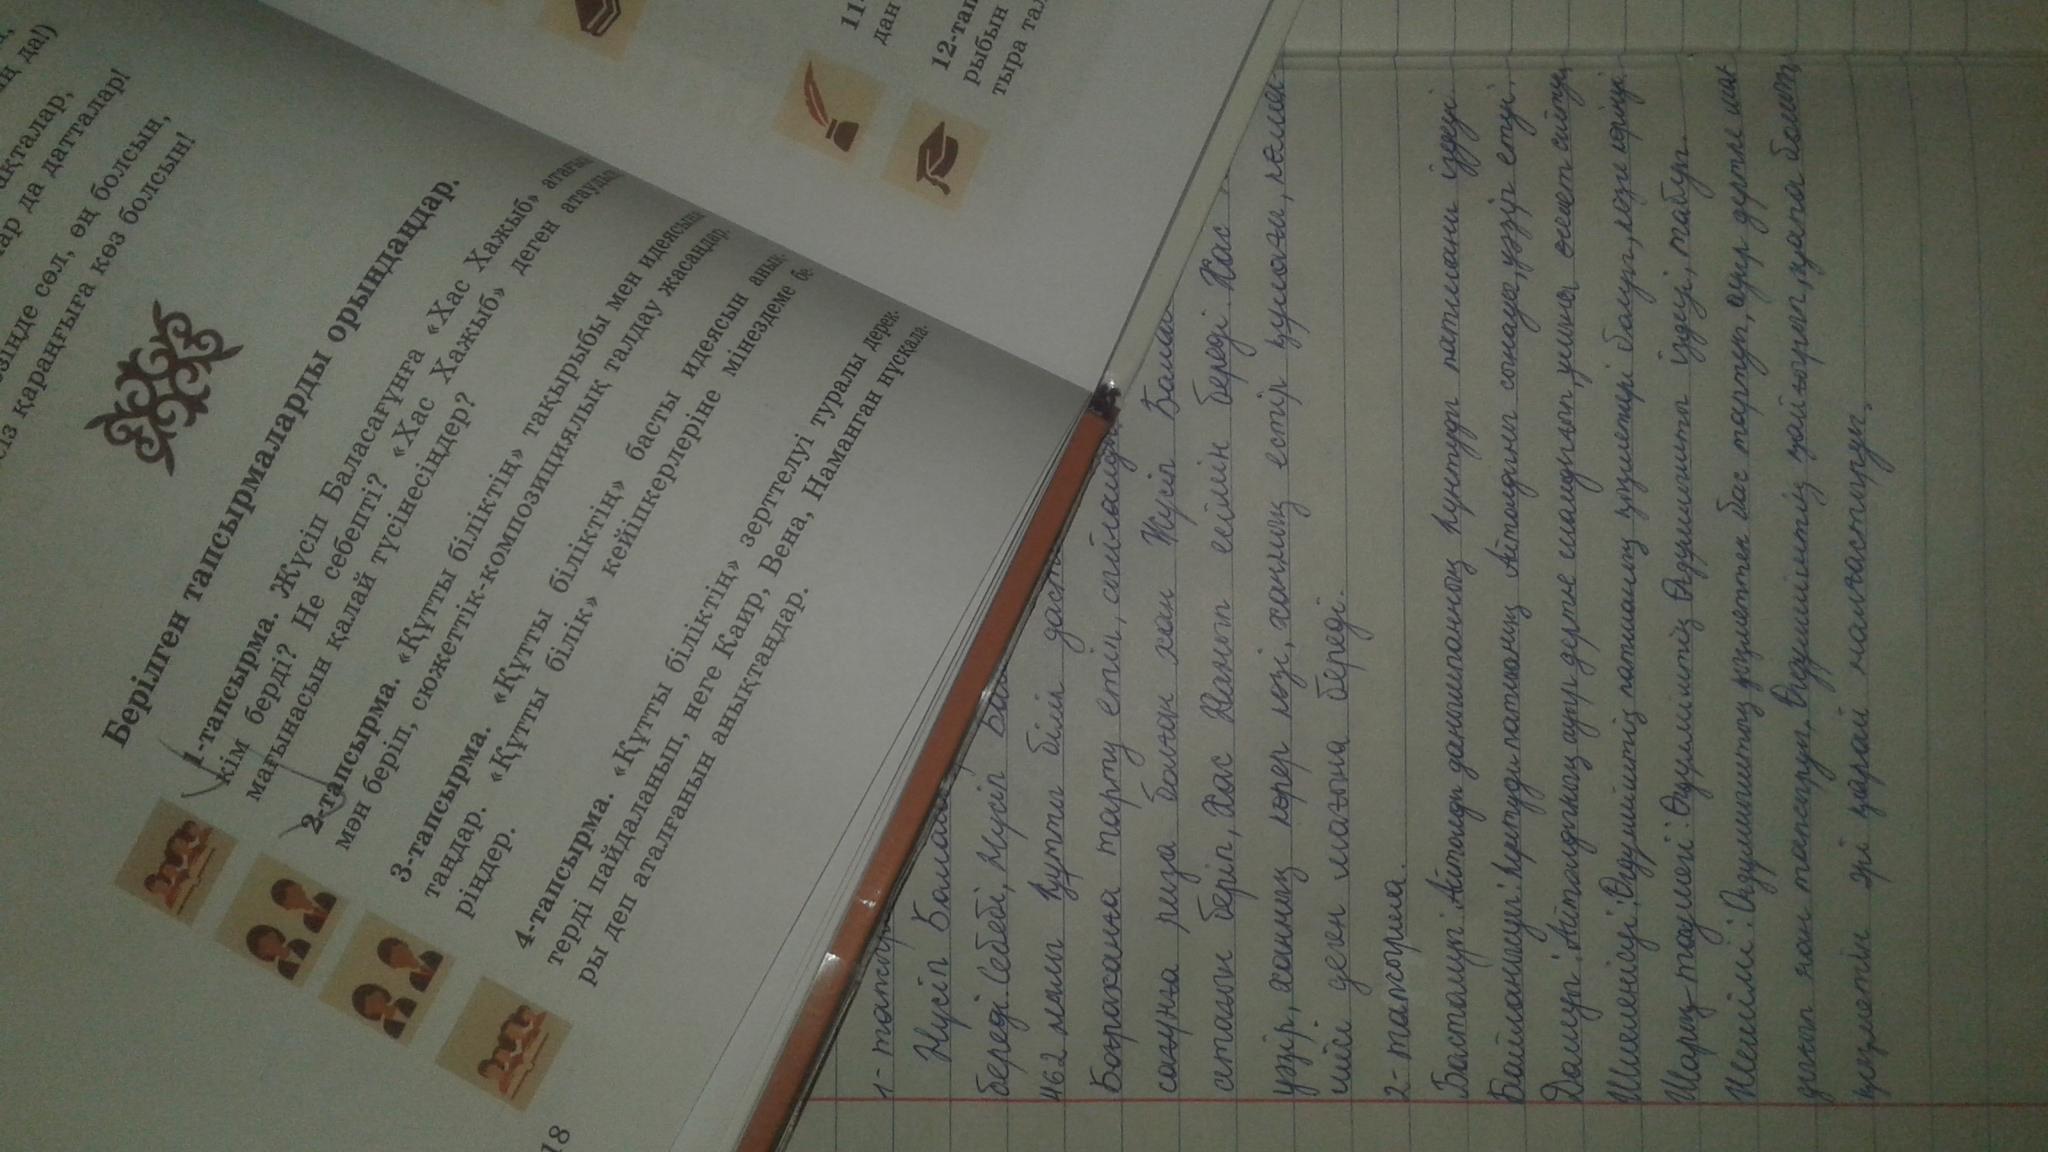 ақталар,
ар да датталар!
өзінде сөл, өң болсын,
із қараңғыға көз болсын!
Берілген тапсырмаларды орындаңдар.
1-тапсырма. Жүсіп Баласағұнға «Хас Хажыб» атағын
кім берді? Не себепті? «Хас Хажыб» деген атаудың
мағынасын қалай түсінесіңдер?
2-тапсырма. «Құтты біліктің» тақырыбы мен идеясына
мән беріп, сюжеттік-композициялық талдау жасаңдар.
3-тапсырма. «Құтты біліктің» басты идеясын анық-
таңдар. «Құтты білік» кейіпкерлеріне мінездеме бе-
ріңдер.
4-тапсырма. «Құтты біліктің» зерттелуі туралы дерек-
терді пайдаланып, неге Каир, Вена, Наманган нұсқала-
ры деп аталғанын анықтаңдар.
18
11-
дан
12-тап
рыбын
тыра тал
1-тапсыр
Жүсіп Баласа
береді. Себебі, Жүсіп Ба
462 жылы Құтты білік даст
Боғраханға тарту етіп, сыйлайды
сағұнға риза болған хан Жүсіп Бала
атағын беріп, Хас Хажып есімін береді. Хас
уәзір, ханның көрер көзі, ханның естір құлағы, көмек-
шісі деген мағына береді.
2-тапсырма.
Басталуы: Айтолды данышпанның Күнтуды патшаны іздеуі.
Байланысуы: Күнтуды патшаның Айтолдыны сынауы, уәзір етуі.
Дамуы: Айтолдының ауыр дертке шалдығып, ұлына өсиет айтуы.
Шиеленісуі: Өгдүлміштің патшаның қызметкері болуы, көзге көрінуі.
Шарықтау шегі: Өгдүлміштің Одғұрмышты іздеуі, табуы.
Шешімі: Одғұрмыштың қызметтен бас тартуы, ауыр дертке шал-
дығып жан тапсыруы, Өгдүлміштің қайғырып, қапа болып,
қызметін әрі қарай жалғастыруы.